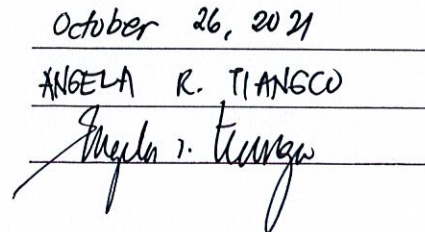 October 26, 2021
ANGELA R. TIANGCO
Angela r. Tiangco